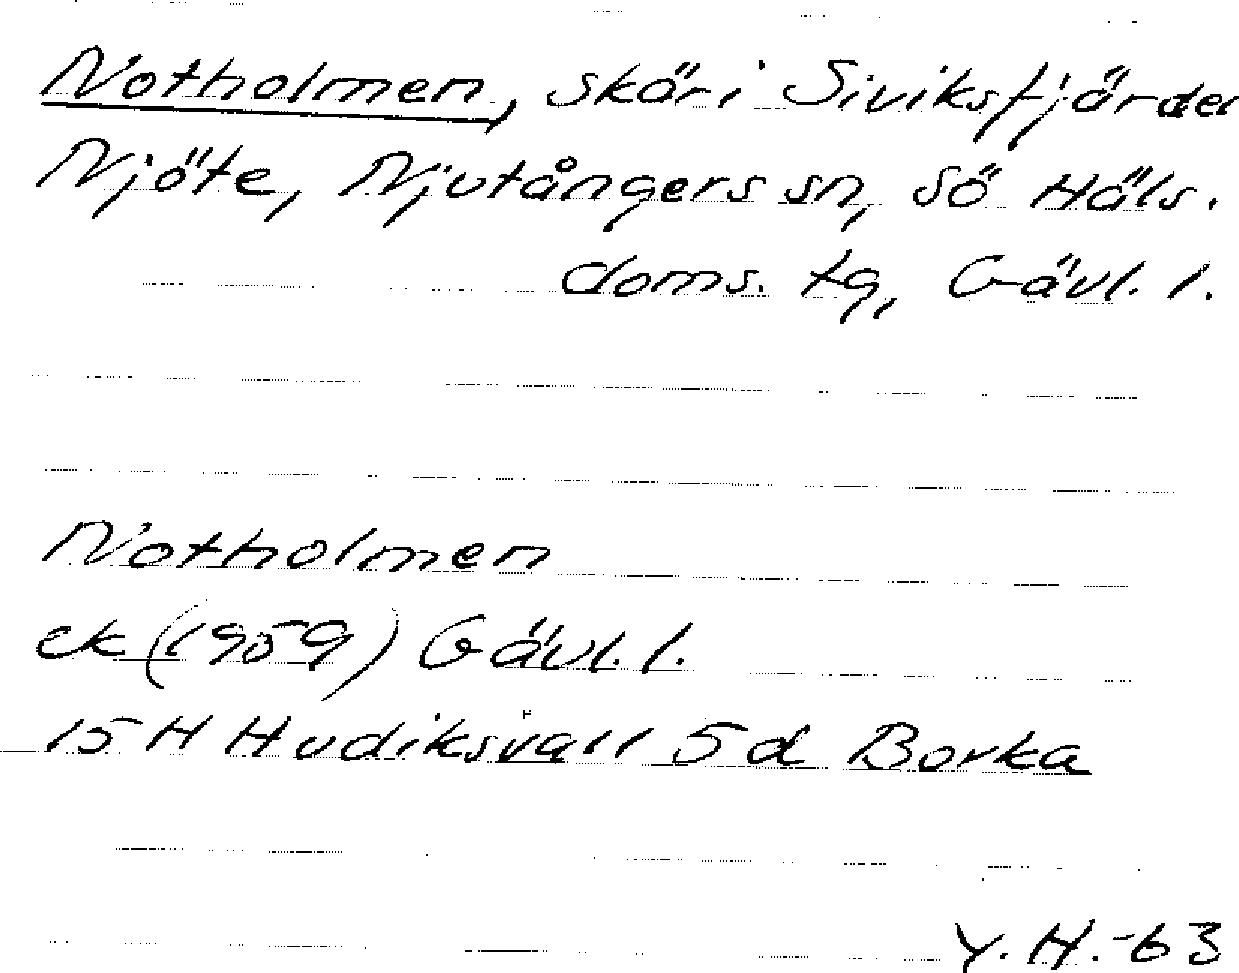 Notholmen, skär i Siviksfjärden
Njöte, Njutångers sn, Sö Häls.
doms. tg, Gävl. l.
Notholmen
ek (1959) Gävl. l.
15 H Hudiksvall 5 d Borka
Y. H. -63